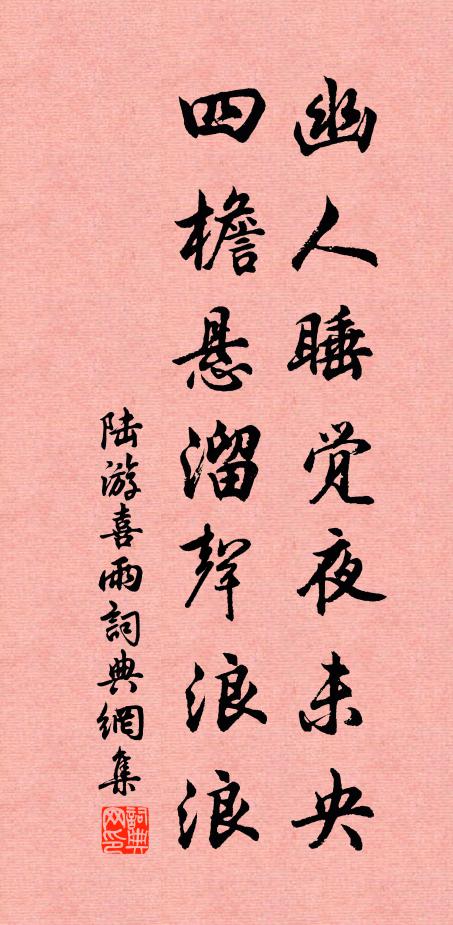 幽人睡觉夜未央
四檐悬溜聲浪浪
陆游喜雨詞典網集
詞典网印